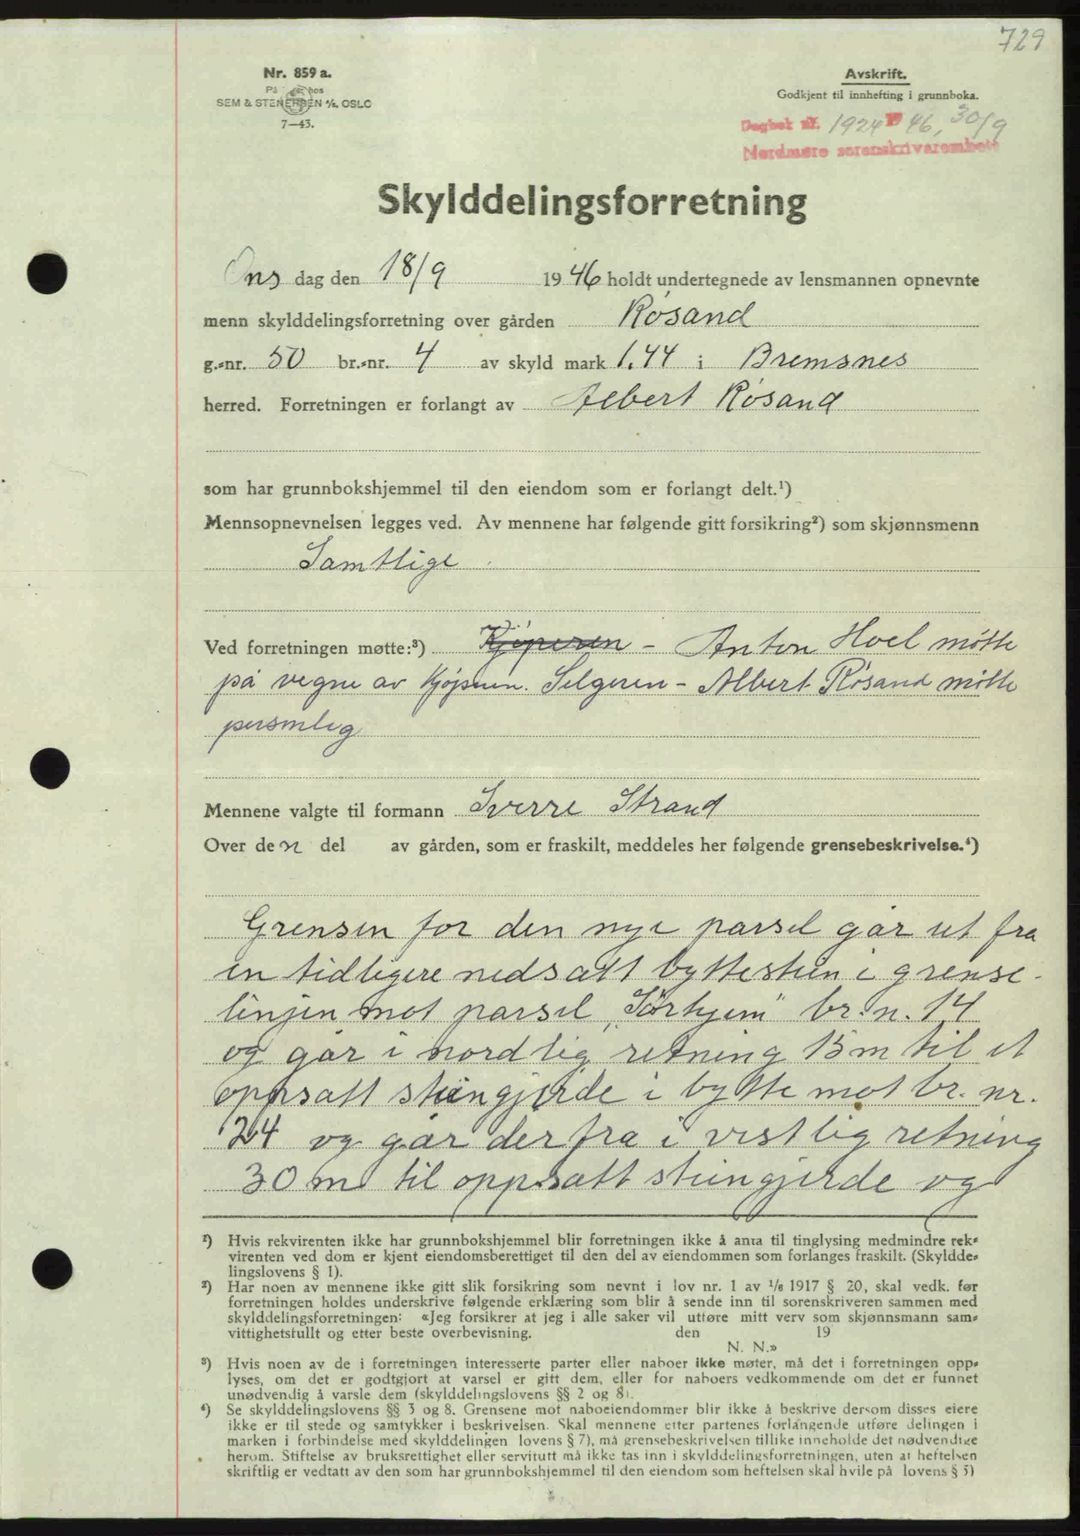 729
Nr. 859 a.
På lager hos
SEM & STENERSEN A/S, OSLO
7—43.
Avskrift.
Godkjent til innhefting i grunnboka.
Dagbok nr. 1924 1946, 30/9
Nordmøre sorenskriverembete
Skylddelingsforretning
Ons dag den 18/9 1946 holdt undertegnede av lensmannen opnevnte
menn skylddelingsforretning over gården Røsand
g.-nr. 50 br.-nr. 4 av skyld mark 1.44 i Bremsnes
herred. Forretningen er forlangt av Albert Røsand
som har grunnbokshjemmel til den eiendom som er forlangt delt.¹)
Mennsopnevnelsen legges ved. Av mennene har følgende gitt forsikring²) som skjønnsmenn
Samtlige
Ved forretningen møtte:³) Kjøperen – Anton Hoel møtte
på vegne av Kjøperen. Selgeren – Albert Røsand møtte
personlig
Mennene valgte til formann Sverre Strand
Over den del av gården, som er fraskilt, meddeles her følgende grensebeskrivelse.⁴)
Grensen for den nye parsel går ut fra
en tidligere nedsatt byttestein i grense-
linjen mot parsel „Sørhjem" br.n. 14
og går i nordlig retning 15 m til et
oppsatt steingjerde i bytte mot br. nr.
24 og går derfra i vestlig retning
30 m til oppsatt steingjerde og
¹) Hvis rekvirenten ikke har grunnbokshjemmel blir forretningen ikke å anta til tinglysing medmindre rek-
virenten ved dom er kjent eiendomsberettiget til den del av eiendommen som forlanges fraskilt. (Skyldde-
lingslovens § 1).
²) Har noen av mennene ikke gitt slik forsikring som nevnt i lov nr. 1 av 1/6 1917 § 20, skal vedk. før
forretningen holdes underskrive følgende erklæring som blir å sende inn til sorenskriveren sammen med
skylddelingsforretningen: «Jeg forsikrer at jeg i alle saker vil utføre mitt verv som skjønnsmann sam-
vittighetsfullt og etter beste overbevisning. den 19
N. N.»
³) Hvis noen av de i forretningen interesserte parter eller naboer ikke møter, må det i forretningen opp-
lyses, om det er godtgjort at varsel er gitt dem, eller for naboers vedkommende om det er funnet
unødvendig å varsle dem (skylddelingslovens §§ 2 og 8).
⁴) Se skylddelingslovens §§ 3 og 8. Grensene mot naboeiendommer blir ikke å beskrive dersom disses eiere
ikke er til stede og samtykker i beskrivelsen. Skal mennene etter partenes forlangende utføre delingen i
marken i forbindelse med skylddelingen lovens § 7), må grensebeskrivelsen tillike inneholde det nødvendige
herom. Stiftelse av bruksrettighet eller servitutt må ikke tas inn i skylddelingsforretningen, uten at heftelsen
skriftlig er vedtatt av den som har grunnbokshjemmel til den eiendom som heftelsen skal hvile på lovens § 5)